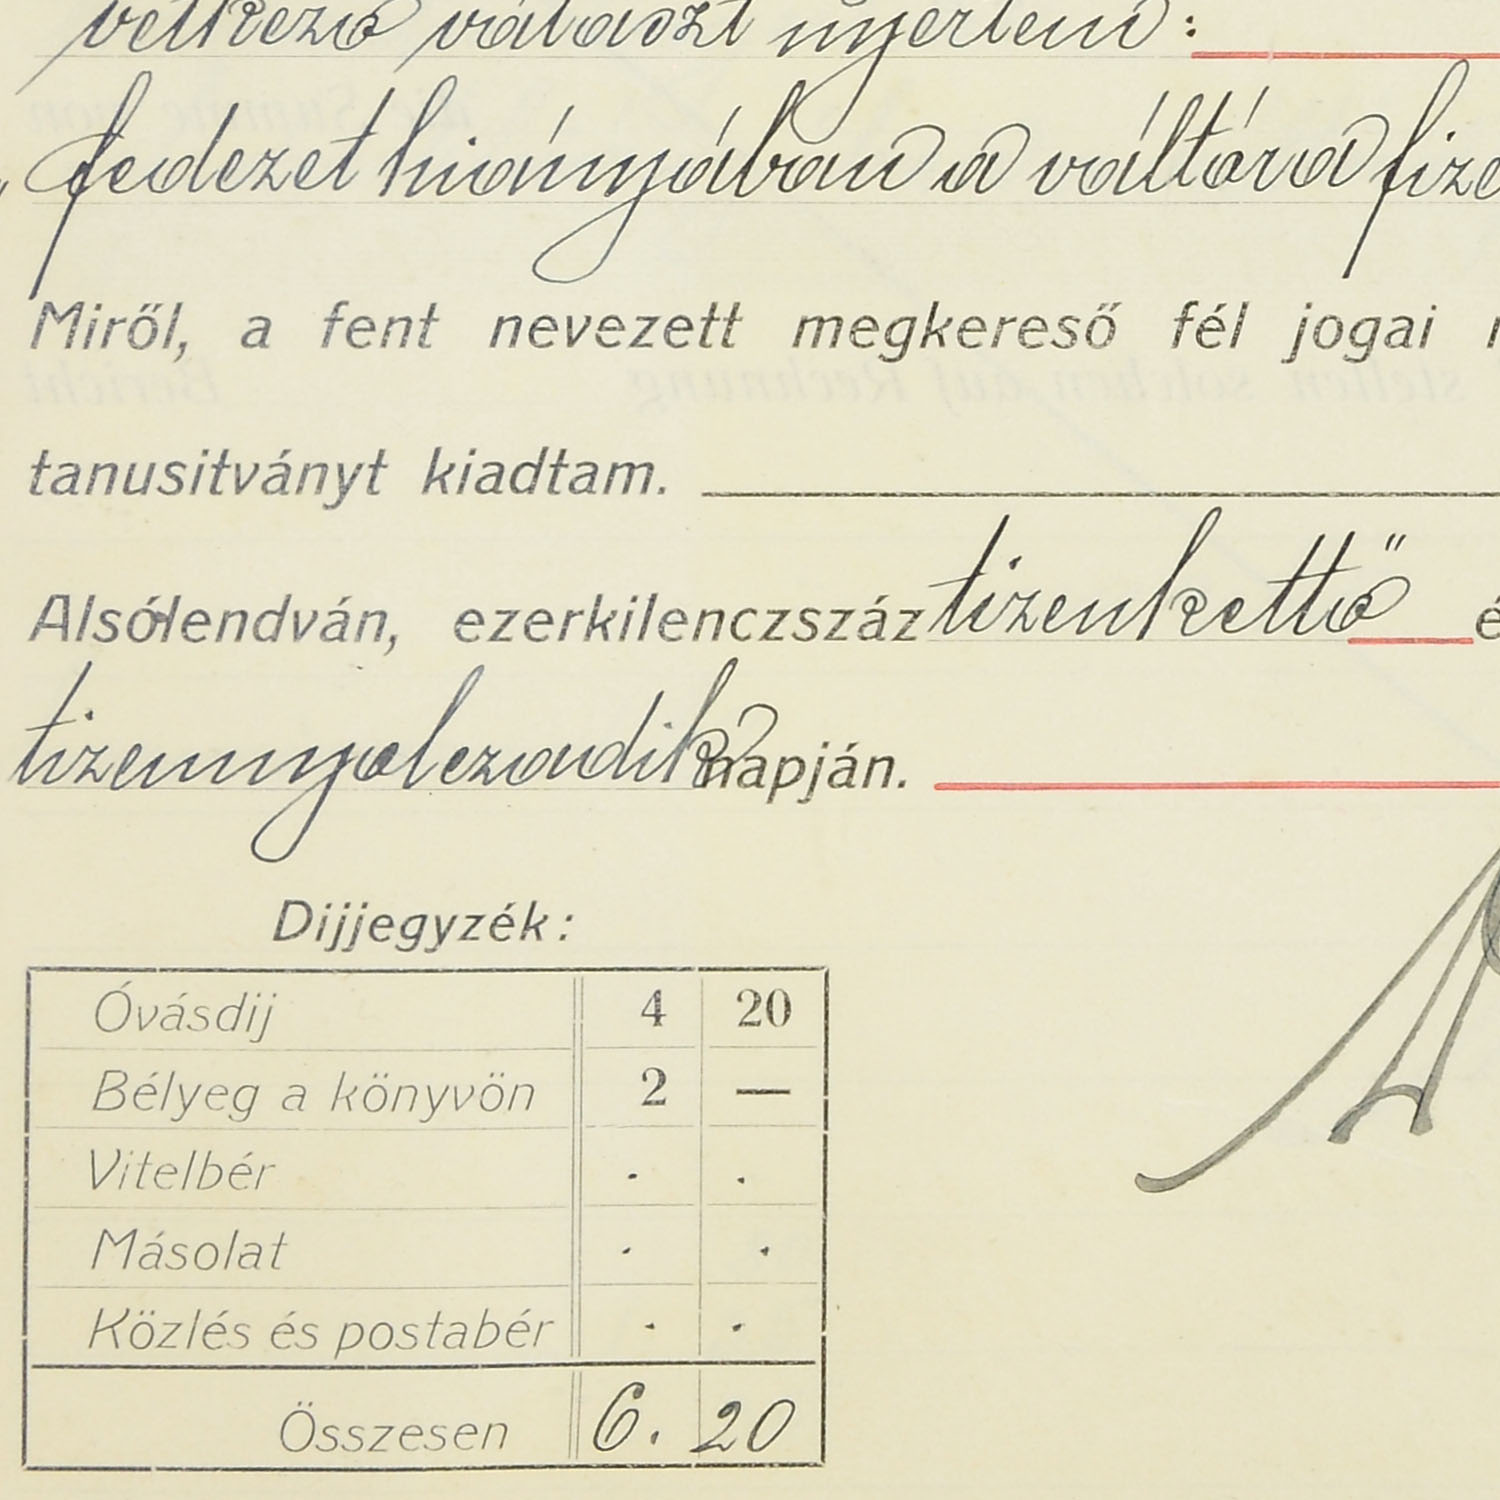 vetkező választ nyertem:
„fedezet hiányában a váltóra fize
Miről, a fent nevezett megkereső fél jogai
tanusitványt kiadtam.
Alsólendván, ezerkilenczszáz tizenkettő é
tizennyolczadik napján.
Dijjegyzék:
Óvásdij 4 20
Bélyeg a könyvön 2 —
Vitelbér . .
Másolat . .
Közlés és postabér . .
Összesen 6. 20